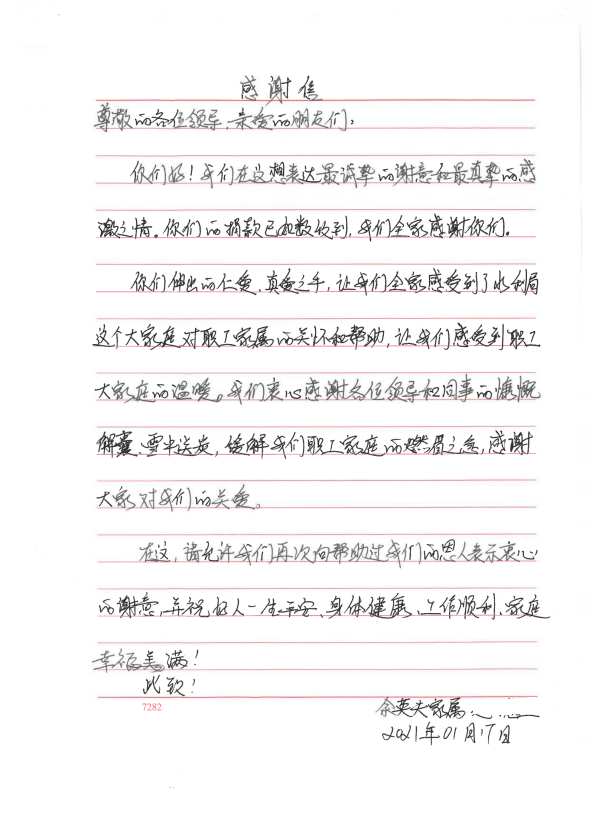 感谢信
尊敬的各位领导、亲爱的朋友们：
你们好！我们在这想表达最诚挚的谢意和最真挚的感
激之情。你们的捐款已如数收到，我们全家感谢你们。
你们伸出的仁爱、真爱之手，让我们全家感受到了水利局
这个大家庭对职工家属的关怀和帮助，让我们感受到职工
大家庭的温暖。我们衷心感谢各位领导和同事的慷慨
解囊、雪中送炭，缓解我们职工家庭的燃眉之急，感谢
大家对我们的关爱。
在这，请允许我们再次向帮助过我们的恩人表示衷心
的谢意，并祝好人一生平安、身体健康、工作顺利、家庭
幸福美满！
此致！
7282
余英夫家属：
2021年01月17日